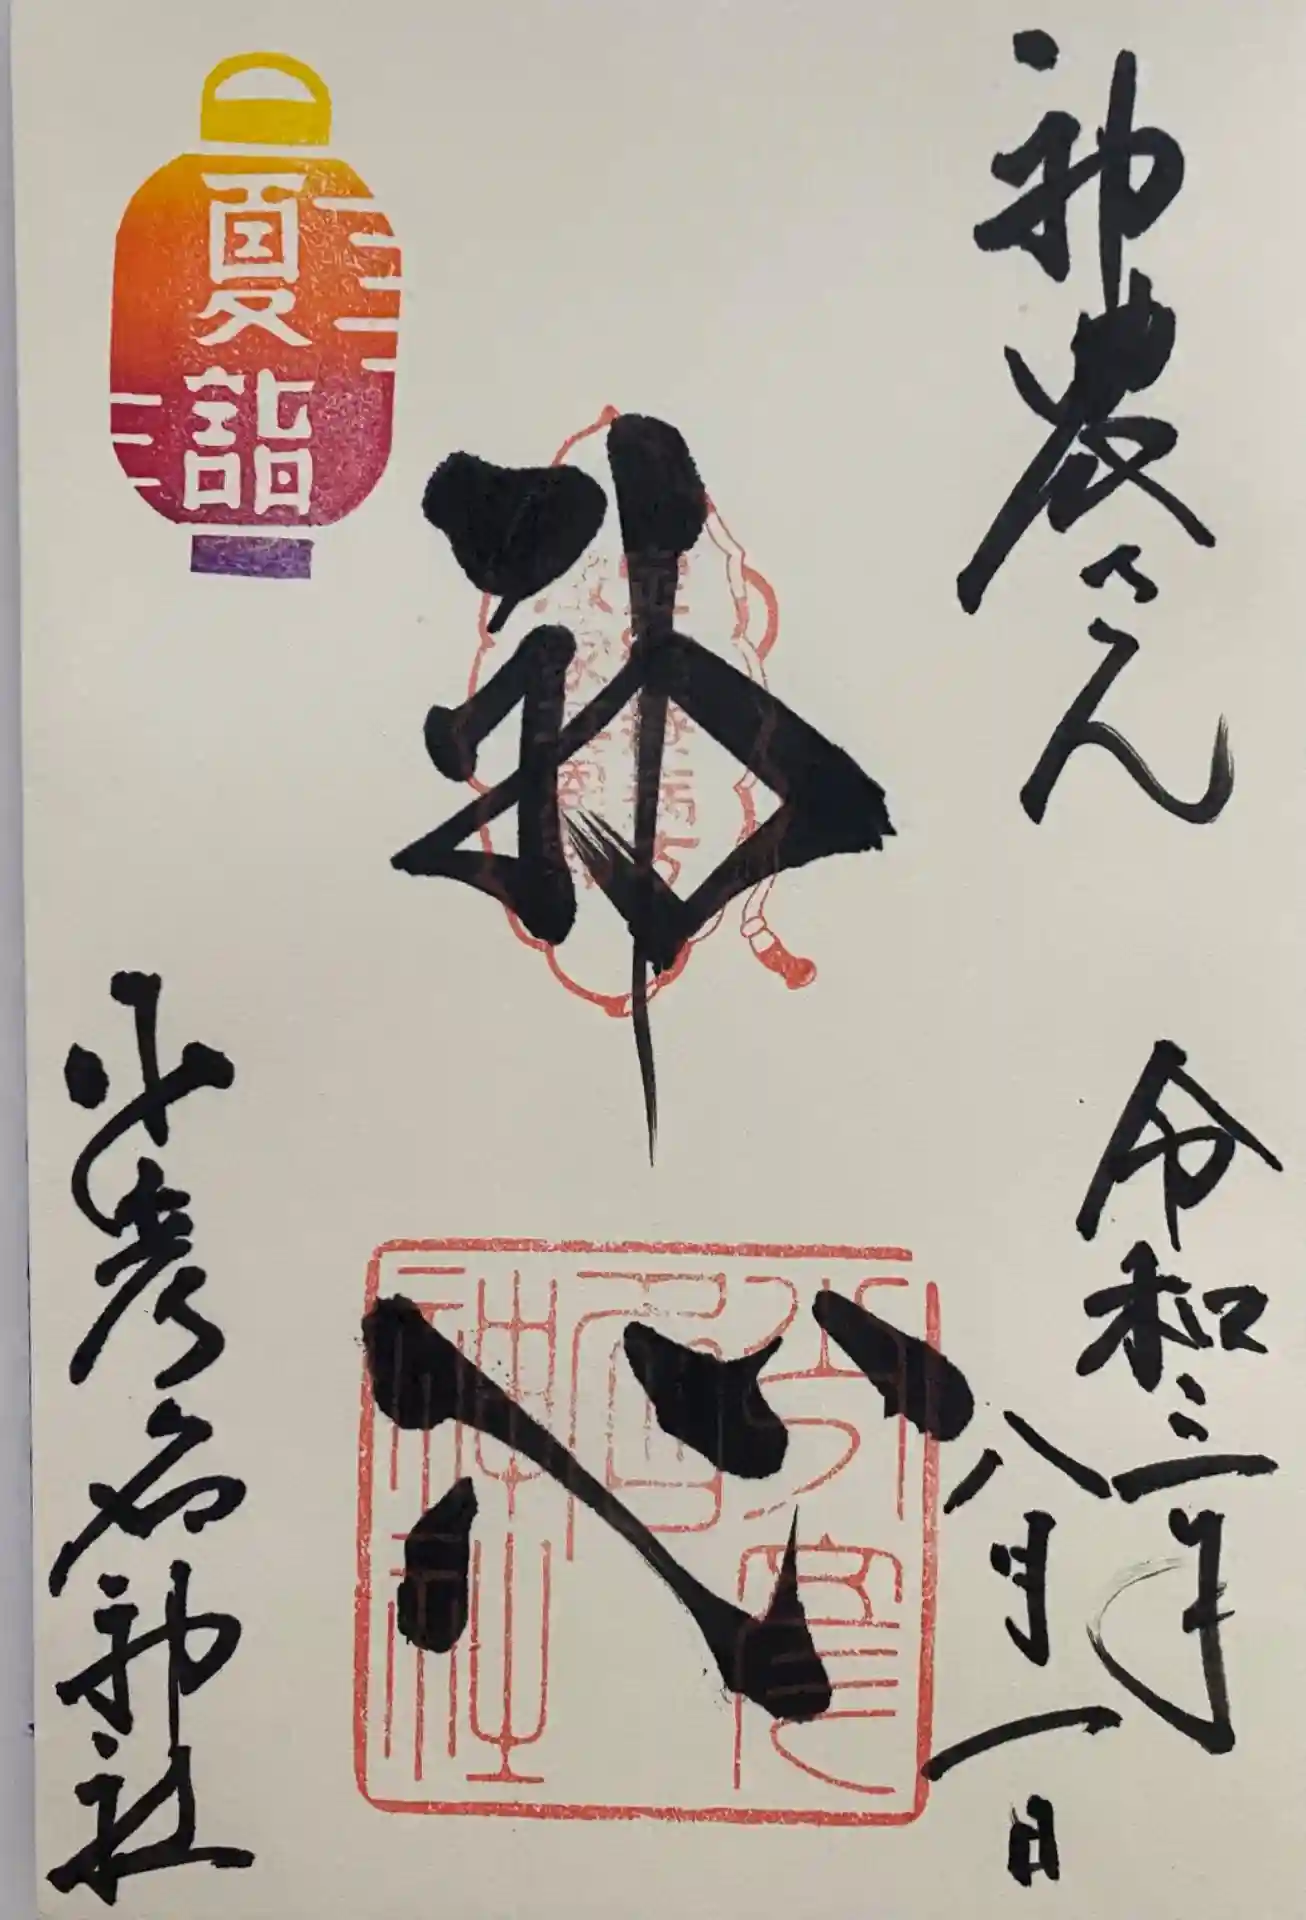 神農さん
令和三年
八月一日
神心
少彦名神社
少彦名神社
夏詣